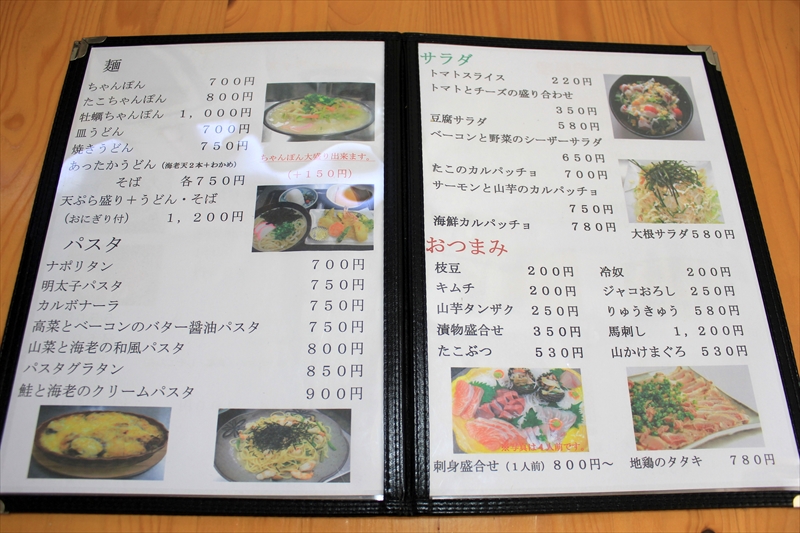 麺
ちゃんぽん ７００円
たこちゃんぽん ８００円
牡蠣ちゃんぽん １，０００円
皿うどん ７００円
焼きうどん ７５０円
あったかうどん（海老天２本＋わかめ）
そば 各７５０円
天ぷら盛り＋うどん・そば
（おにぎり付） １，２００円
ちゃんぽん大盛り出来ます。
（＋１５０円）
パスタ
ナポリタン ７００円
明太子パスタ ７５０円
カルボナーラ ７５０円
高菜とベーコンのバター醤油パスタ ７５０円
山菜と海老の和風パスタ ８００円
パスタグラタン ８５０円
鮭と海老のクリームパスタ ９００円
サラダ
トマトスライス ２２０円
トマトとチーズの盛り合わせ
３５０円
豆腐サラダ ５８０円
ベーコンと野菜のシーザーサラダ
６５０円
たこのカルパッチョ ７００円
サーモンと山芋のカルパッチョ
７５０円
海鮮カルパッチョ ７８０円
大根サラダ５８０円
おつまみ
枝豆 ２００円 冷奴 ２００円
キムチ ２００円 ジャコおろし ２５０円
山芋タンザク ２５０円 りゅうきゅう ５８０円
漬物盛合せ ３５０円 馬刺し １，２００円
たこぶつ ５３０円 山かけまぐろ ５３０円
刺身盛合せ（１人前）８００円～ 地鶏のタタキ ７８０円